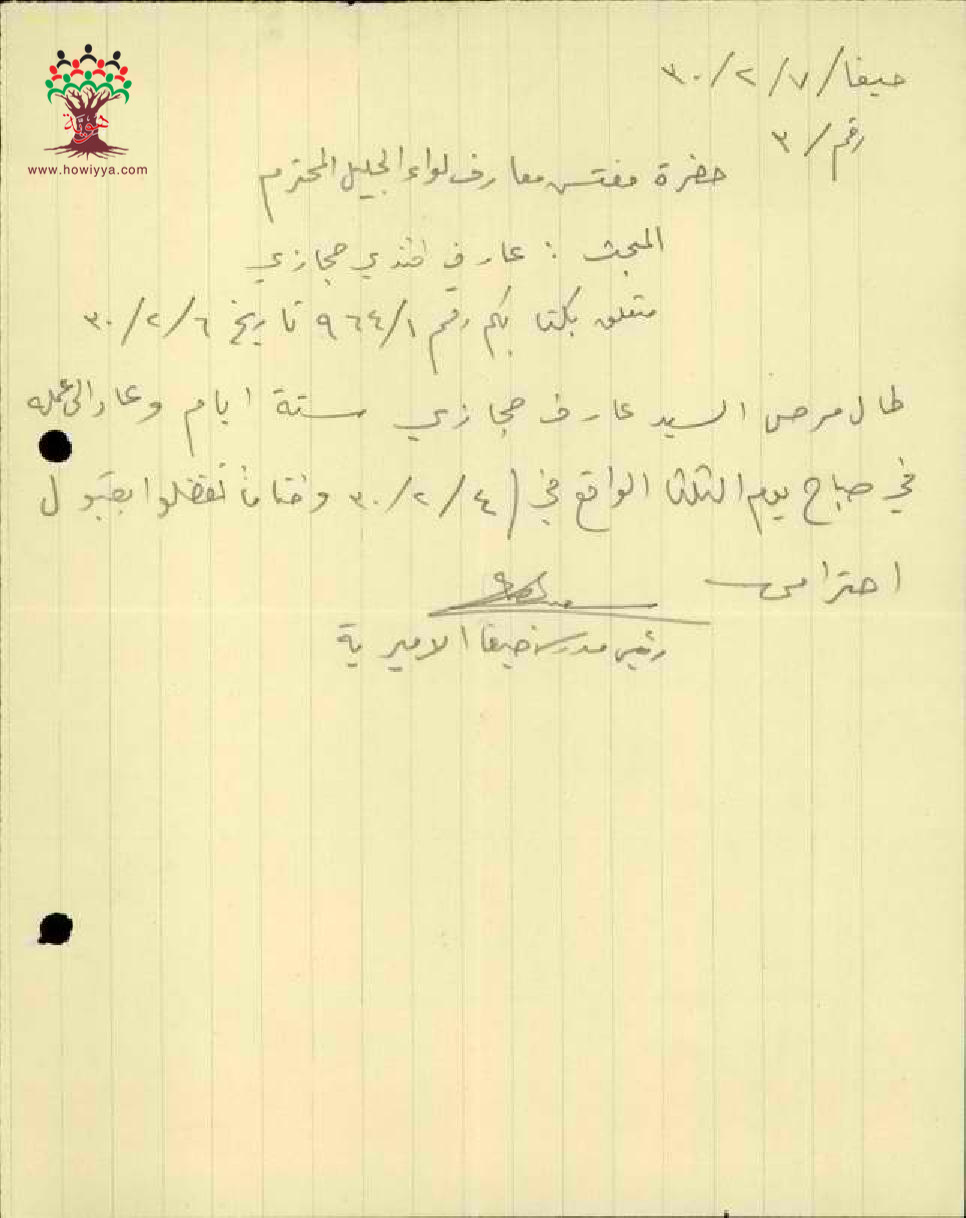 هوية
www.howiyya.com
حيفا/ ٧/ ٢/ ٣٠
رقم/ ٣
حضرة مفتش معارف لواء الجليل المحترم
المبحث : عارف افندي حجازي
متعلق بكتابكم رقم ٩٦٤/١ تاريخ ٣٠/٢/٦
طال مرض السيد عارف حجازي ستة ايام وعاد الى عمله
في صباح يوم الثلثا الواقع في ( ٣٠/٢/٤ وختاماً تفضلوا بقبول
احترامي
رئيس مدرسة حيفا الاميرية